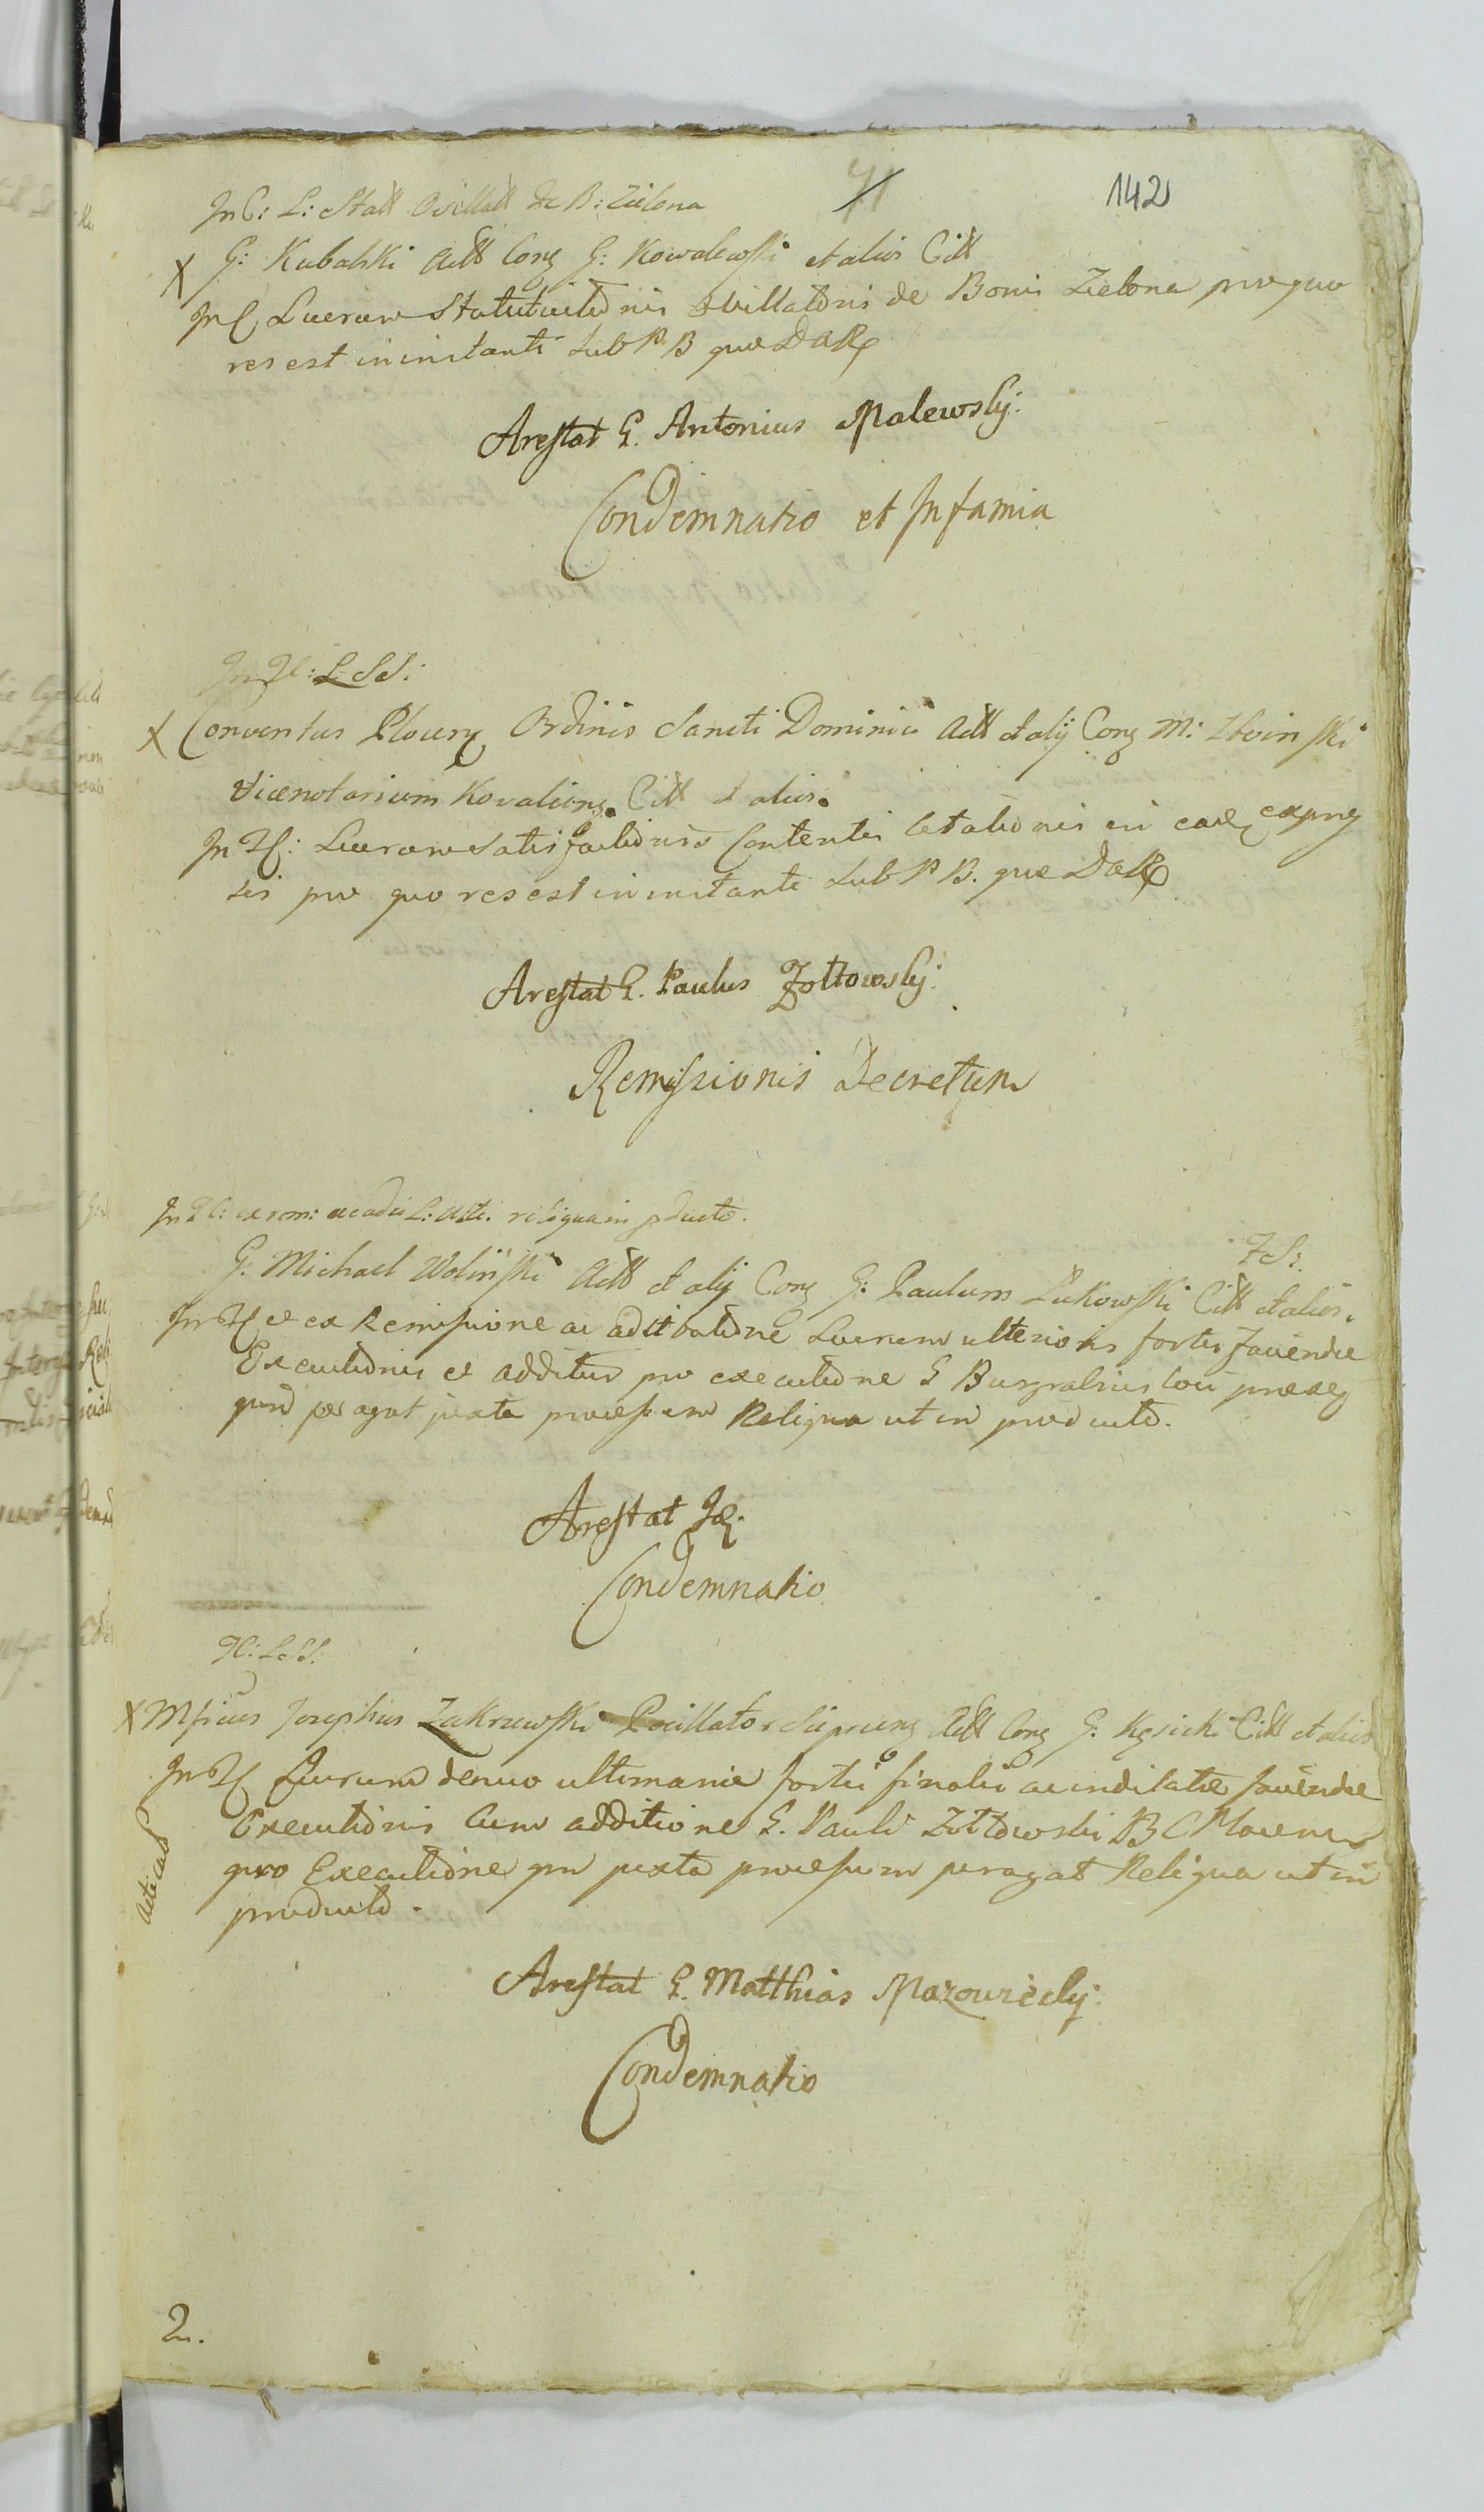 71 142
In C: L: Statt Ovillatt de B: Zielona
X G: Kubalski Actt Cong G: Kowalewski et alios Citt
In C Lucrum Statutuitionis Ovillationis de Bonis Zielone pro quo
res est in instanti sub P B que DaR
Arestat G. Antonius Malewsky:
Condemnatio et Infamia
In H: L: SS:
X Conventus Plocen Ordinis Sancti Dominici Actt et alij Cong M:
Vicenotarium Citt et alios.
In H: Lucrum Satisfactionis Contentis Citationis in eadem expres
sis pro quo res est in instanti sub P B. que DaR
Arestat G. Paulus Zołtowsky:
Remissionis Decretum
In H: ex rem: ac adit L: reliqua in pducto.
G: Michael Woliński Actt et alij Cong G: Paulum Lukowski Citt et alios.
In H et ex Remissione ac Lucrum ulterioris fortis faciendae
Executionis et additur pro executione G Burgrabius loci
quod peragat juxta processum Reliqua ut in producto.
Arestat
Condemnatio
H: L: SS:
X Mficus Josephus Zakrzewski Pocillator Actt Cong G: Kęsicki Citt et alios
In H Lucrum denuo ultimarie fortis finalis ac indilatae faciendae
Executionis Cum additione G. Pauli Zołtowski B C Plocen
pro Executione qm juxta processum peragat Reliqua ut in
producto.
Arestat G. Matthias Mazowiecky:
Condemnatio
2.